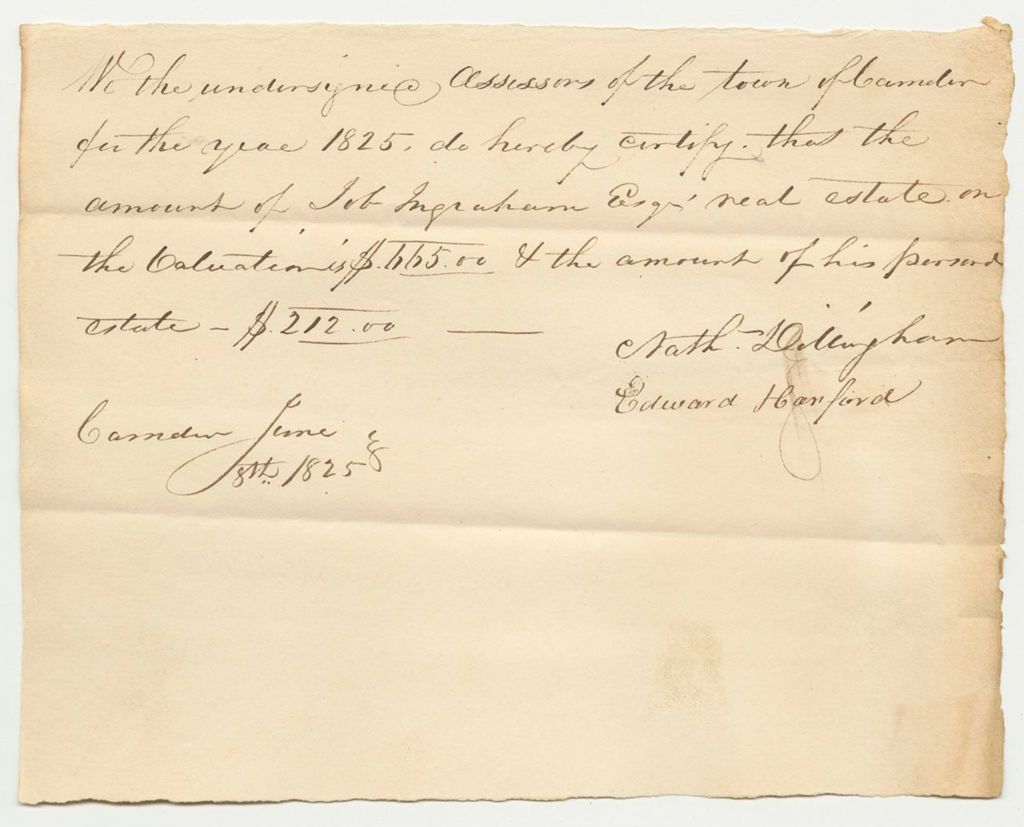 We the undersigned Assessors of the town of Camden
for the year 1825, do hereby certify, that the
amount of Job Ingraham Esqr' real estate on
the Valuation is $665.00 & the amount of his personal
estate – $212.00 ——
Nathl Dillingham
Edward Hanford
Camden June
8th 1825